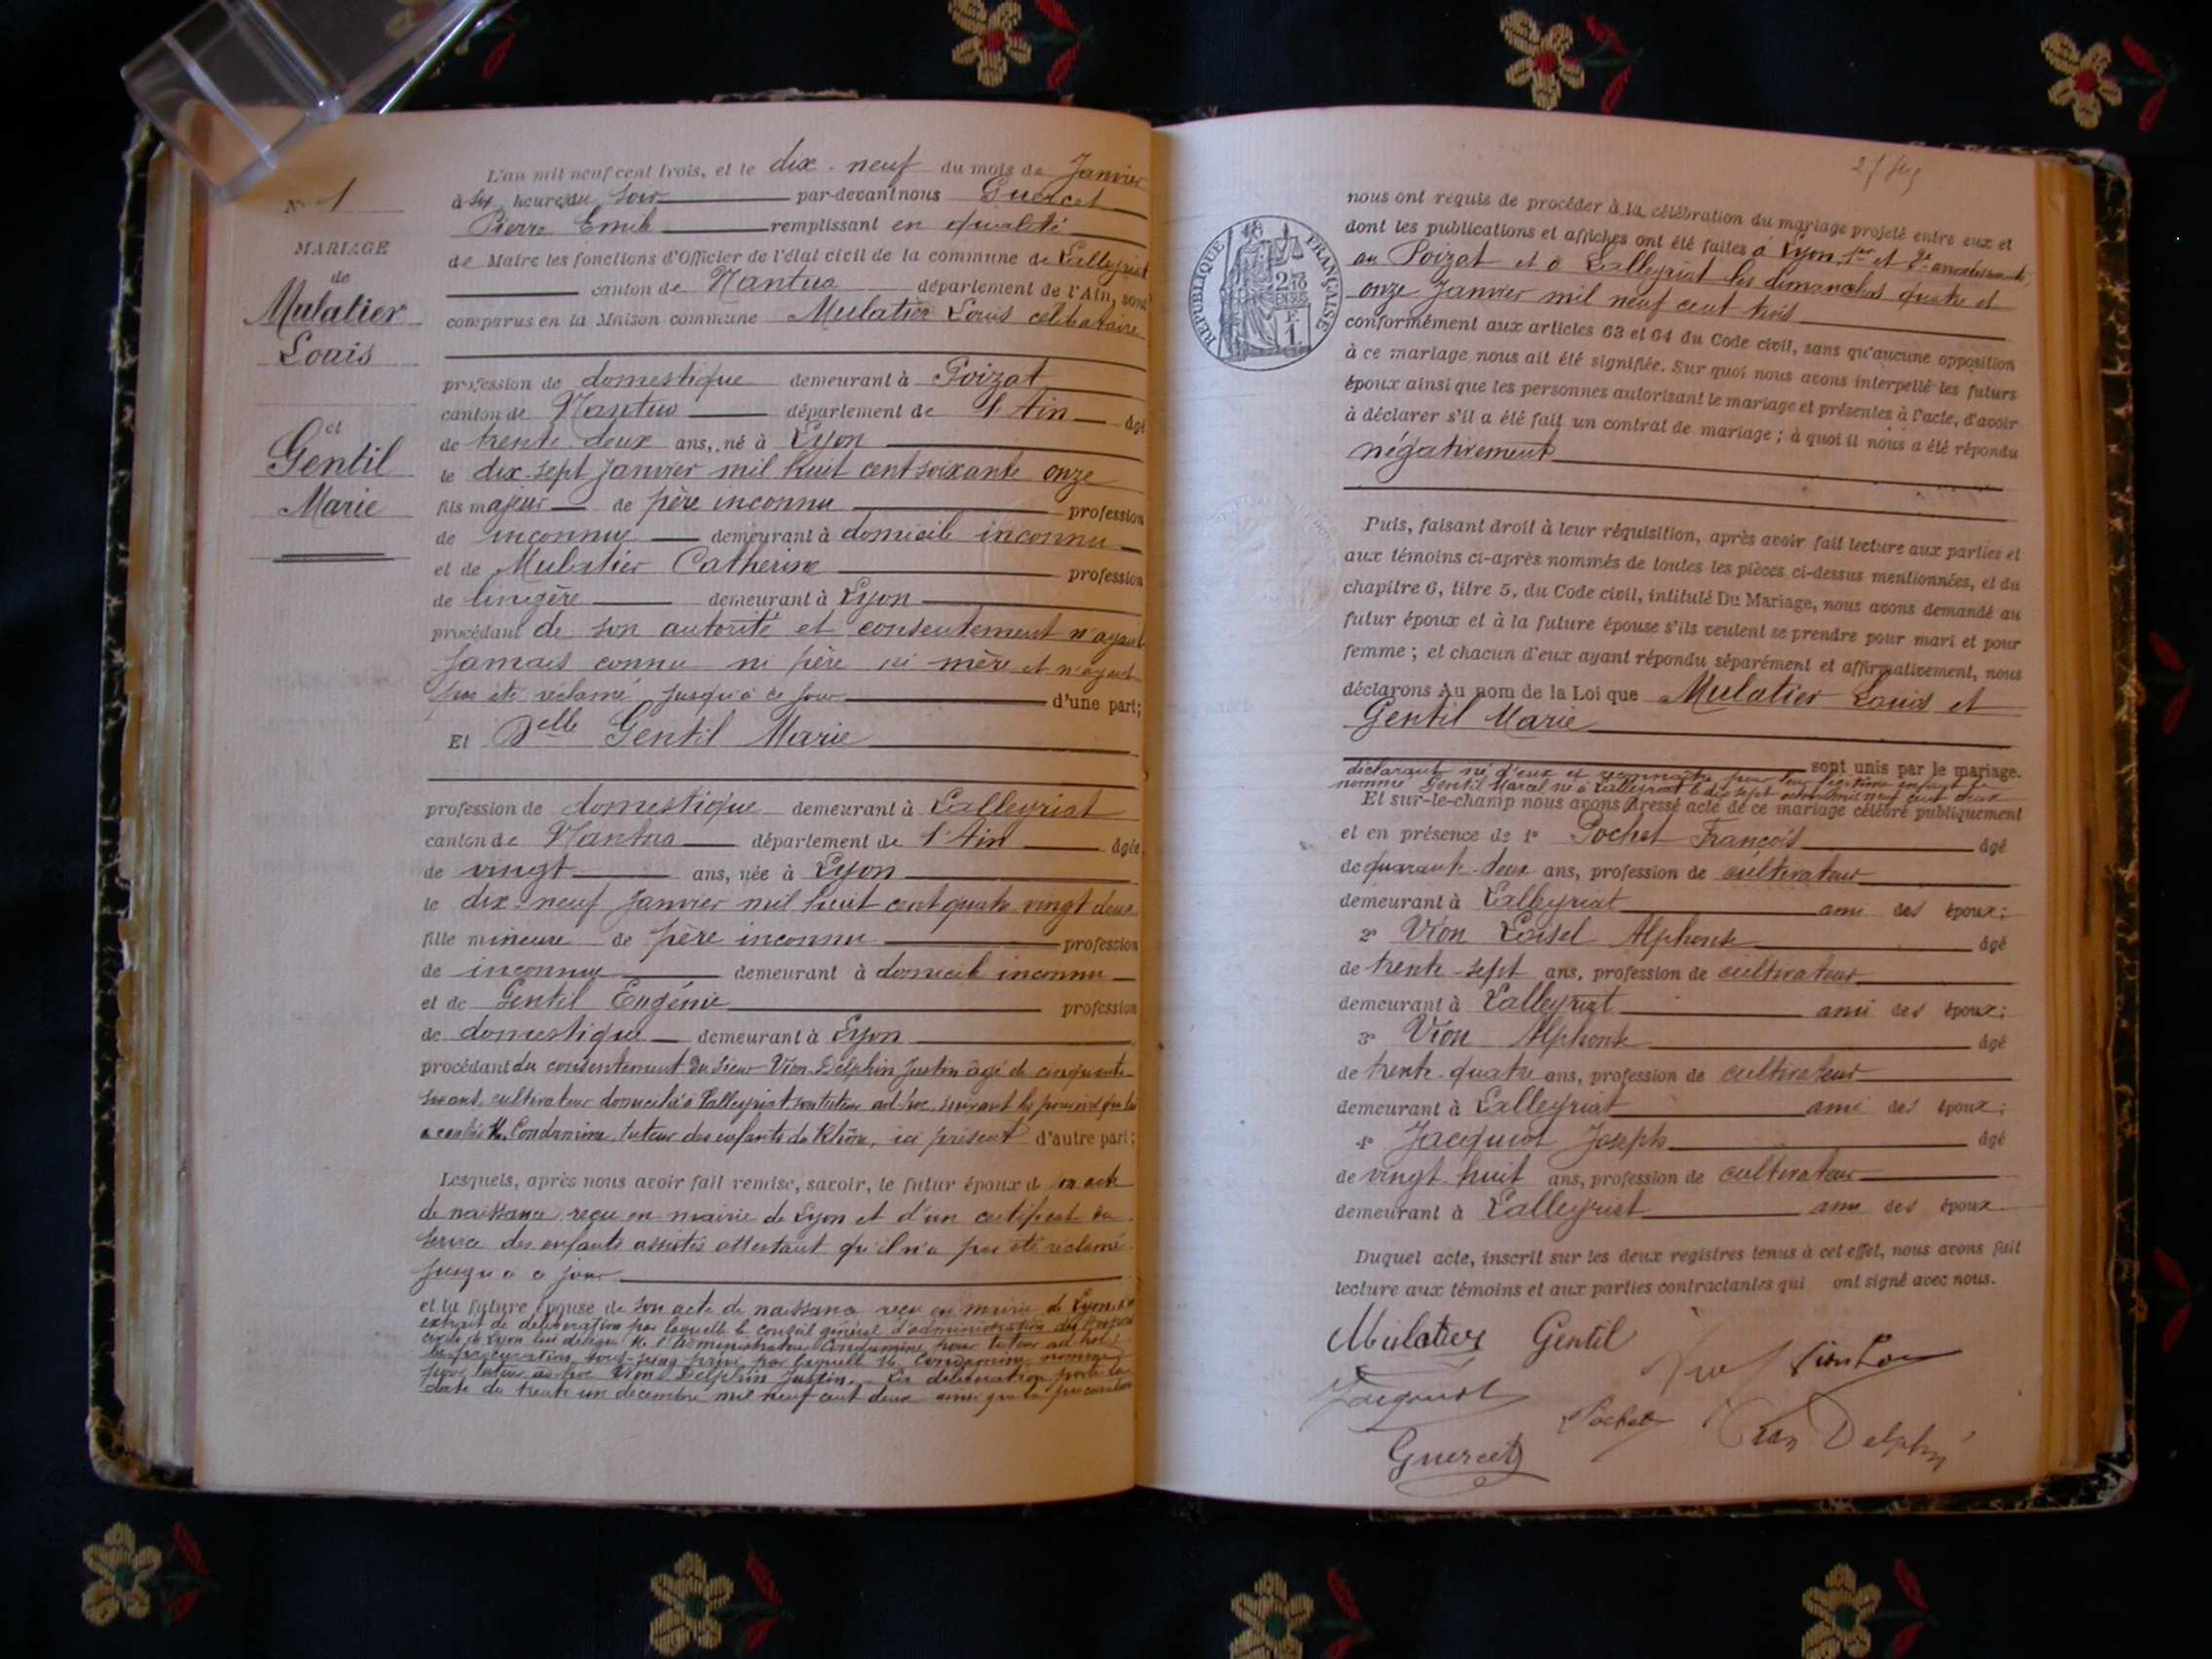 N° 1
MARIAGE
de
Mulatier
Louis
et
Gentil
Marie
L'an mil neuf cent trois, et le dix-neuf du mois de Janvier
à six heures du soir par-devant nous Guercet
Pierre Emile remplissant en qualité
de Maire les fonctions d'Officier de l'état civil de la commune de Lalleyriat
canton de Nantua département de l'Ain, sont
comparus en la Maison commune Mulatier Louis célibataire
profession de domestique demeurant à Poizat
canton de Nantua département de l'Ain âgé
de trente deux ans, né à Lyon
le dix-sept Janvier mil huit cent soixante onze
fils majeur de père inconnu profession
de inconnue demeurant à domicile inconnu
et de Mulatier Catherine profession
de lingère demeurant à Lyon
procédant de son autorité et consentement n'ayant
jamais connu ni père ni mère et n'ayant
pas été réclamé jusqu'à ce jour d'une part;
Et Delle Gentil Marie
profession de domestique demeurant à Lalleyriat
canton de Nantua département de l'Ain âgée
de vingt ans, née à Lyon
le dix-neuf Janvier mil huit cent quatre vingt deux
fille mineure de père inconnu profession
de inconnue demeurant à domicile inconnu
et de Gentil Eugénie profession
de domestique demeurant à Lyon
procédant du consentement du sieur Vion Delphin Justin âgé de cinquante
six ans, cultivateur domicilié à Lalleyriat, son tuteur ad-hoc, suivant les pouvoirs que lui
a confiés M. Condamine, tuteur des enfants du Rhône, ici présent d'autre part;
Lesquels, après nous avoir fait remise, savoir, le futur époux de son acte
de naissance reçu en mairie de Lyon et d'un certificat du
service des enfants assistés attestant qu'il n'a pas été réclamé
jusqu'à ce jour
et la future épouse de son acte de naissance reçu en mairie de Lyon,
extrait de délibération par laquelle le conseil général d'administration des hospices
civils de Lyon lui délègue M. l'Administrateur Condamine pour tuteur ad hoc;
la procuration sous-seing privé par laquelle M. Condamine nomme
pour tuteur ad-hoc Vion Delphin Justin. La délibération porte la
date du trente un décembre mil neuf cent deux ainsi que la procuration
RÉPUBLIQUE FRANÇAISE
nous ont requis de procéder à la célébration du mariage projeté entre eux et
dont les publications et affiches ont été faites à Lyon, 1er et 2e arrondissements,
au Poizat et à Lalleyriat les dimanches quatre et
onze Janvier mil neuf cent trois
conformément aux articles 63 et 64 du Code civil, sans qu'aucune opposition
à ce mariage nous ait été signifiée. Sur quoi nous avons interpellé les futurs
époux ainsi que les personnes autorisant le mariage et présentes à l'acte, d'avoir
à déclarer s'il a été fait un contrat de mariage; à quoi il nous a été répondu
négativement
Puis, faisant droit à leur réquisition, après avoir fait lecture aux parties et
aux témoins ci-après nommés de toutes les pièces ci-dessus mentionnées, et du
chapitre 6, titre 5, du Code civil, intitulé Du Mariage, nous avons demandé au
futur époux et à la future épouse s'ils veulent se prendre pour mari et pour
femme; et chacun d'eux ayant répondu séparément et affirmativement, nous
déclarons Au nom de la Loi que Mulatier Louis et
Gentil Marie
sont unis par le mariage.
déclarant né d'eux et reconnaître pour leur légitime enfant le
nommé Gentil Marcel né à Lalleyriat le dix sept mil neuf cent deux
Et sur-le-champ nous avons dressé acte de ce mariage célébré publiquement
et en présence de 1° Pochet François âgé
de quarante-deux ans, profession de cultivateur
demeurant à Lalleyriat ami des époux;
2° Vion Loisel Alphonse âgé
de trente-sept ans, profession de cultivateur
demeurant à Lalleyriat ami des époux;
3° Vion Alphonse âgé
de trente-quatre ans, profession de cultivateur
demeurant à Lalleyriat ami des époux;
4° Jacquiot Joseph âgé
de vingt huit ans, profession de cultivateur
demeurant à Lalleyriat ami des époux.
Duquel acte, inscrit sur les deux registres tenus à cet effet, nous avons fait
lecture aux témoins et aux parties contractantes qui ont signé avec nous.
Mulatier Gentil
Jacquiot
Pochet
Vion Delphin
Guercet